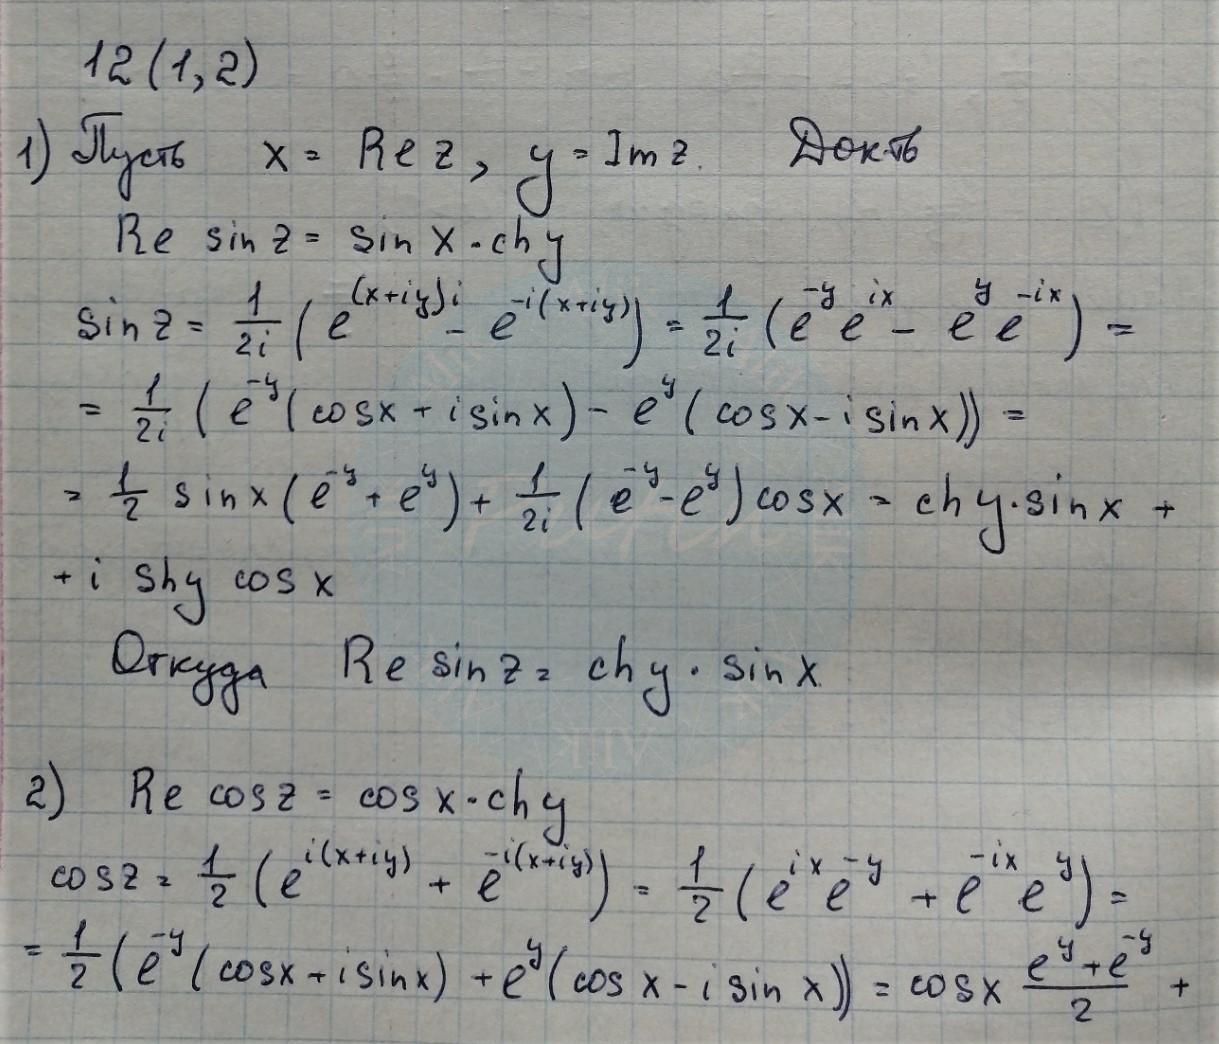 12(1,2)
1) Пусть x = Re z, y = Im z. Док-ть
Re sin z = sin x · ch y
sin z = 1/2i (e^{(x+iy)i} - e^{-i(x+iy)}) = 1/2i (e^{-y} e^{ix} - e^{y} e^{-ix}) =
= 1/2i (e^{-y}(cos x + i sin x) - e^{y}(cos x - i sin x)) =
= 1/2 sin x (e^{-y} + e^{y}) + 1/2i (e^{-y} - e^{y}) cos x = ch y · sin x +
+ i sh y cos x
Откуда Re sin z = ch y · sin x.
2) Re cos z = cos x · ch y
cos z = 1/2 (e^{i(x+iy)} + e^{-i(x+iy)}) = 1/2 (e^{ix} e^{-y} + e^{-ix} e^{y}) =
= 1/2 (e^{-y}(cos x + i sin x) + e^{y}(cos x - i sin x)) = cos x (e^{y} + e^{-y})/2 +